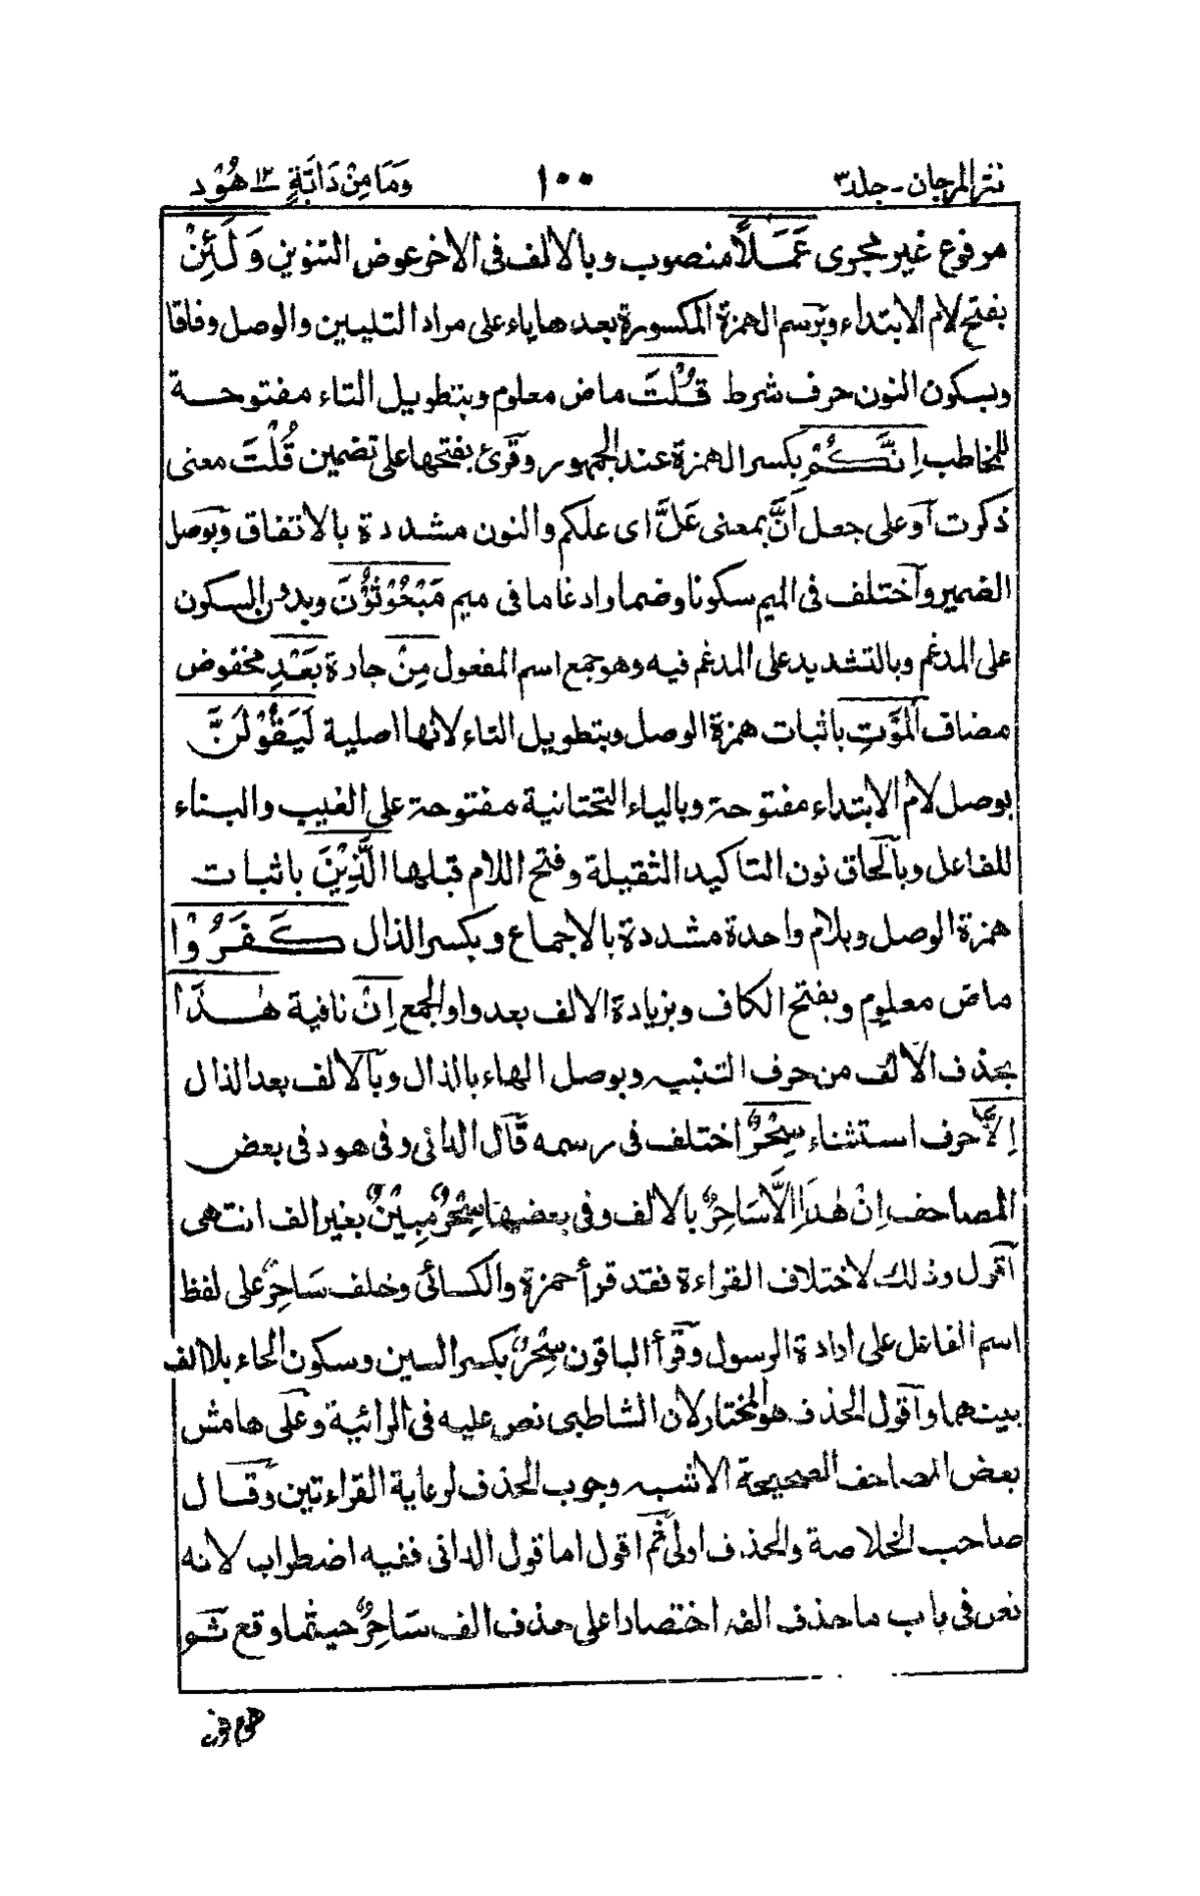 نثر المرجان - جلد ٣
١٠٠
وَمَا مِنْ دَابَّةٍ ١٢ هُوْد
مرفوع غير مجرى عَمَلًا منصوب وبالالف فى الاخر عوض التنوين وَلَئِنْ
بفتح لام الابتداء وبرسم الهمزة المكسورة بعدها ياء على مراد التليين والوصل وفاقا
وبسكون النون حرف شرط قُلْتَ ماض معلوم وبتطويل التاء مفتوحة
للمخاطب اِنَّكُمْ بكسر الهمزة عند الجمهور وقرئ بفتحها على تضمين قُلْتَ معنى
ذكرت آو على جعل اَنَّ بمعنى عَلَّ اى علكم والنون مشددة بالاتفاق وبوصل
الضمير وآختلف فى الميم سكونا وضما وادغاما فى ميم مَبْعُوْثُوْنَ وبدون السكون
على المدغم وبالتشديد على المدغم فيه وهو جمع اسم المفعول مِنْ جارة بَعْدِ مخفوض
مضاف الْمَوْتِ باثبات همزة الوصل وبتطويل التاء لانها اصلية لَيَقُوْلَنَّ
بوصل لام الابتداء مفتوحة وبالياء التحتانية مفتوحة على الغيب والبناء
للفاعل وبآلحاق نون التاكيد الثقيلة وفتح اللام قبلها الَّذِيْنَ باثبات
همزة الوصل وبلام واحدة مشددة بالاجماع وبكسر الذال كَفَرُوْا
ماض معلوم وبفتح الكاف وبزيادة الالف بعد واو الجمع اِنْ نافية هٰذَا
بحذف الالف من حرف التنبيه وبوصل الهاء بالذال وبآلالف بعد الذال
اِلَّا حرف استثناء سِحْرٌ اختلف فى رسمه قآل الدانى وفى هود فى بعض
المصاحف اِنْ هٰذَا اِلَّا سَاحِرٌ بالالف وفى بعضها سِحْرٌ مُّبِيْنٌ بغير الف انتهى
آقول وذلك لاختلاف القراءة فقد قرأ حمزة والكسائى وخلف سَاحِرٌ على لفظ
اسم الفاعل على ارادة الرسول وقرأ الباقون سِحْرٌ بكسر السين وسكون الحاء بلا الف
بينهما وآقول الحذف هو المختار لان الشاطبى نص عليه فى الرائية وعلى هامش
بعض المصاحف الصحيحة الاشبه وجوب الحذف لرعاية القراءتين وقال
صاحب الخلاصة والحذف اولى ثم اقول اما قول الدانى ففيه اضطراب لانه
نص فى باب ما حذف الفه اختصارا على حذف الف سَاحِرٌ حيثما وقع ثم